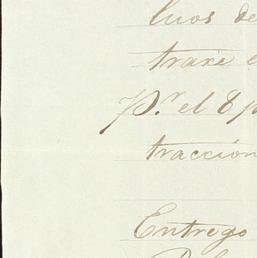 luos de
traxe e
P.r el 8 p
tracción
Entrego